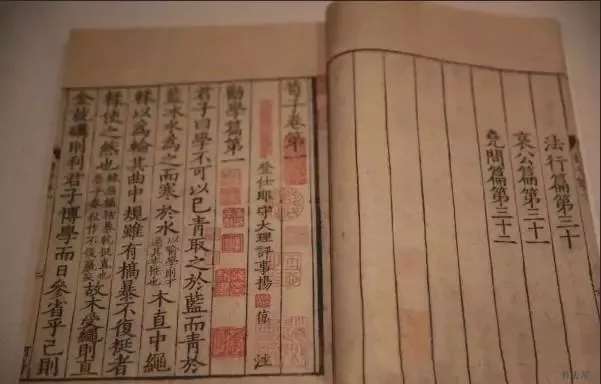 法行篇第三十
哀公篇第三十一
堯問篇第三十二
荀子卷第一
登仕郎守大理評事楊倞注
勸學篇第一
君子曰學不可以已青取之於藍而青於
藍冰水為之而寒於水以喻學則才過其本性也木直中繩
輮以為輪其曲中規雖有槁暴不復挺者
輮使之然也故木受繩則直
金就礪則利君子博學而日參省乎己則